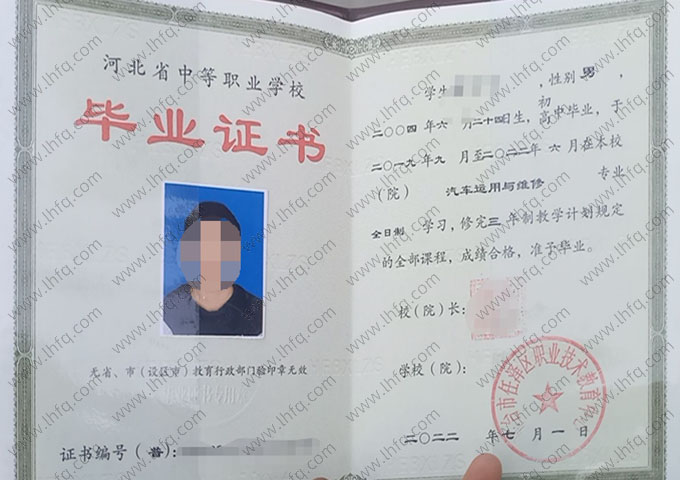 河北省中等职业学校
毕业证书
无省、市（设区市）教育行政部门验印章无效
证书编号（普）：
学生，性别男，
二〇〇四年六月二十四日生，初高中毕业，于
二〇一九年九月至二〇二二年六月在本校
（院）汽车运用与维修专业
全日制学习，修完三年制教学计划规定
的全部课程，成绩合格，准予毕业。
校（院）长：
学校（院）：
台市任泽区职业技术教育
二〇二二年七月一日
www.lhfq.com